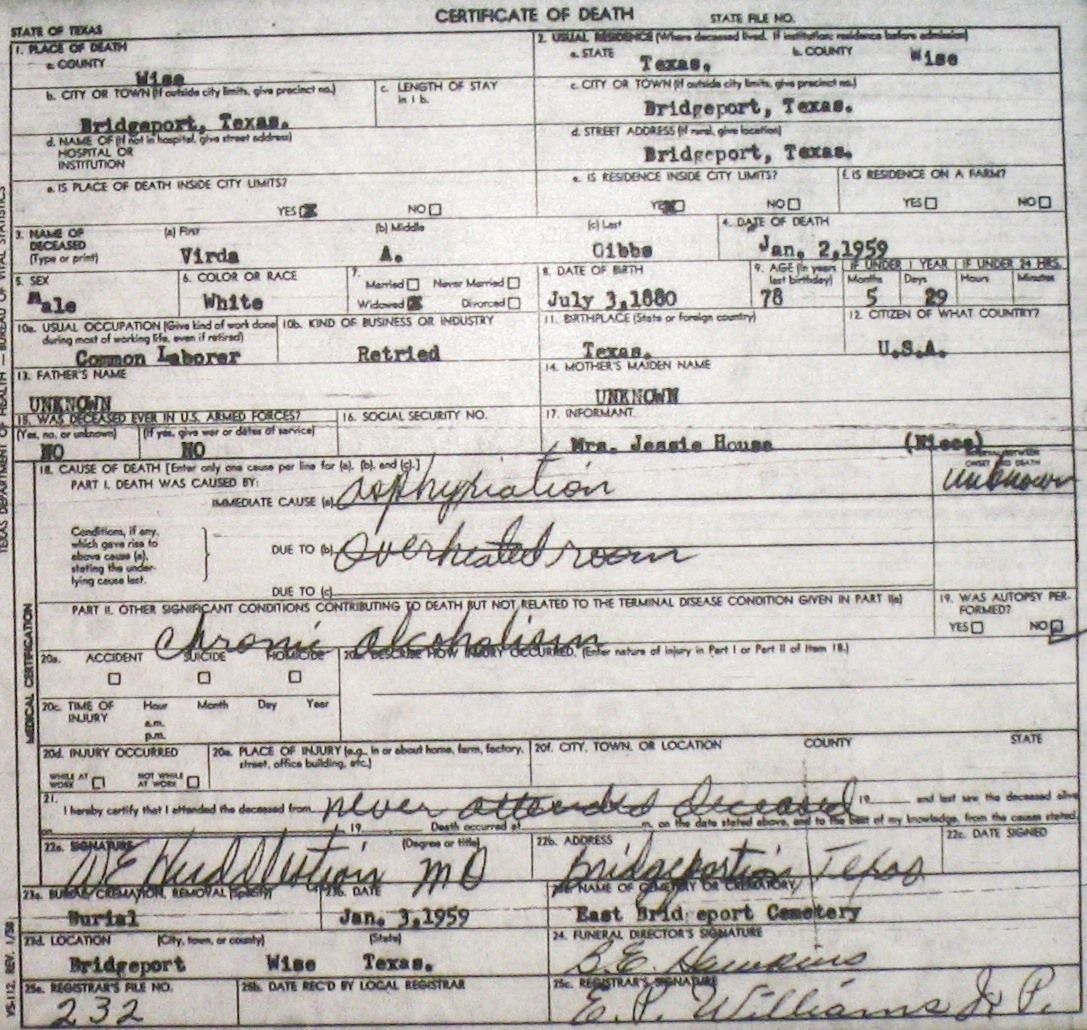 CERTIFICATE OF DEATH
STATE OF TEXAS
STATE FILE NO.
1. PLACE OF DEATH
a. COUNTY
Wise
2. USUAL RESIDENCE (Where deceased lived. If institution: residence before admission)
a. STATE
Texas.
b. COUNTY
Wise
b. CITY OR TOWN (If outside city limits, give precinct no.)
Bridgeport, Texas.
c. LENGTH OF STAY
in 1 b.
c. CITY OR TOWN (If outside city limits, give precinct no.)
Bridgeport, Texas.
d. NAME OF (If not in hospital, give street address)
HOSPITAL OR
INSTITUTION
d. STREET ADDRESS (If rural, give location)
Bridgeport, Texas.
e. IS PLACE OF DEATH INSIDE CITY LIMITS?
YES NO
e. IS RESIDENCE INSIDE CITY LIMITS?
YES NO
f. IS RESIDENCE ON A FARM?
YES NO
3. NAME OF
DECEASED
(Type or print)
(a) First
Virda
(b) Middle
A.
(c) Last
Gibbs
4. DATE OF DEATH
Jan. 2,1959
5. SEX
Male
6. COLOR OR RACE
White
7.
Married Never Married
Widowed Divorced
8. DATE OF BIRTH
July 3,1880
9. AGE (In years
last birthday)
78
IF UNDER 1 YEAR
Months Days
5 29
IF UNDER 24 HRS.
Hours Minutes
10a. USUAL OCCUPATION (Give kind of work done
during most of working life, even if retired)
Common Laborer
10b. KIND OF BUSINESS OR INDUSTRY
Retried
11. BIRTHPLACE (State or foreign country)
Texas.
12. CITIZEN OF WHAT COUNTRY?
U.S.A.
13. FATHER'S NAME
UNKNOWN
14. MOTHER'S MAIDEN NAME
UNKNOWN
15. WAS DECEASED EVER IN U.S. ARMED FORCES?
(Yes, no, or unknown) (If yes, give war or dates of service)
NO NO
16. SOCIAL SECURITY NO.
17. INFORMANT
Mrs. Jessie House (Niece)
18. CAUSE OF DEATH [Enter only one cause per line for (a), (b), and (c).]
PART I. DEATH WAS CAUSED BY:
IMMEDIATE CAUSE (a) asphyxiation
INTERVAL BETWEEN
ONSET AND DEATH
unknown
Conditions, if any,
which gave rise to
above cause (a),
stating the under-
lying cause last.
DUE TO (b) overheated room
DUE TO (c)
PART II. OTHER SIGNIFICANT CONDITIONS CONTRIBUTING TO DEATH BUT NOT RELATED TO THE TERMINAL DISEASE CONDITION GIVEN IN PART I(a)
chronic alcoholism
19. WAS AUTOPSY PER-
FORMED?
YES NO
20a. ACCIDENT SUICIDE HOMICIDE
20b. DESCRIBE HOW INJURY OCCURRED. (Enter nature of injury in Part I or Part II of Item 18.)
20c. TIME OF
INJURY
Hour Month Day Year
a.m.
p.m.
20d. INJURY OCCURRED
WHILE AT
WORK
NOT WHILE
AT WORK
20e. PLACE OF INJURY (e.g., in or about home, farm, factory,
street, office building, etc.)
20f. CITY, TOWN, OR LOCATION COUNTY STATE
21.
I hereby certify that I attended the deceased from never attended deceased 19 and last saw the deceased alive
on 19 Death occurred at m. on the date stated above, and to the best of my knowledge, from the causes stated.
22a. SIGNATURE (Degree or title)
WE Huddleston MD
22b. ADDRESS
Bridgeport Texas
22c. DATE SIGNED
23a. BURIAL, CREMATION, REMOVAL (Specify)
Burial
23b. DATE
Jan. 3,1959
23c. NAME OF CEMETERY OR CREMATORY
East Brid eport Cemetery
23d. LOCATION (City, town, or county) (State)
Bridgeport Wise Texas.
24. FUNERAL DIRECTOR'S SIGNATURE
B.E. Hawkins
25a. REGISTRAR'S FILE NO.
232
25b. DATE REC'D BY LOCAL REGISTRAR
25c. REGISTRAR'S SIGNATURE
E. P. Williams J. P.
MEDICAL CERTIFICATION
TEXAS DEPARTMENT OF HEALTH — BUREAU OF VITAL STATISTICS
VS-112, REV. 1/58